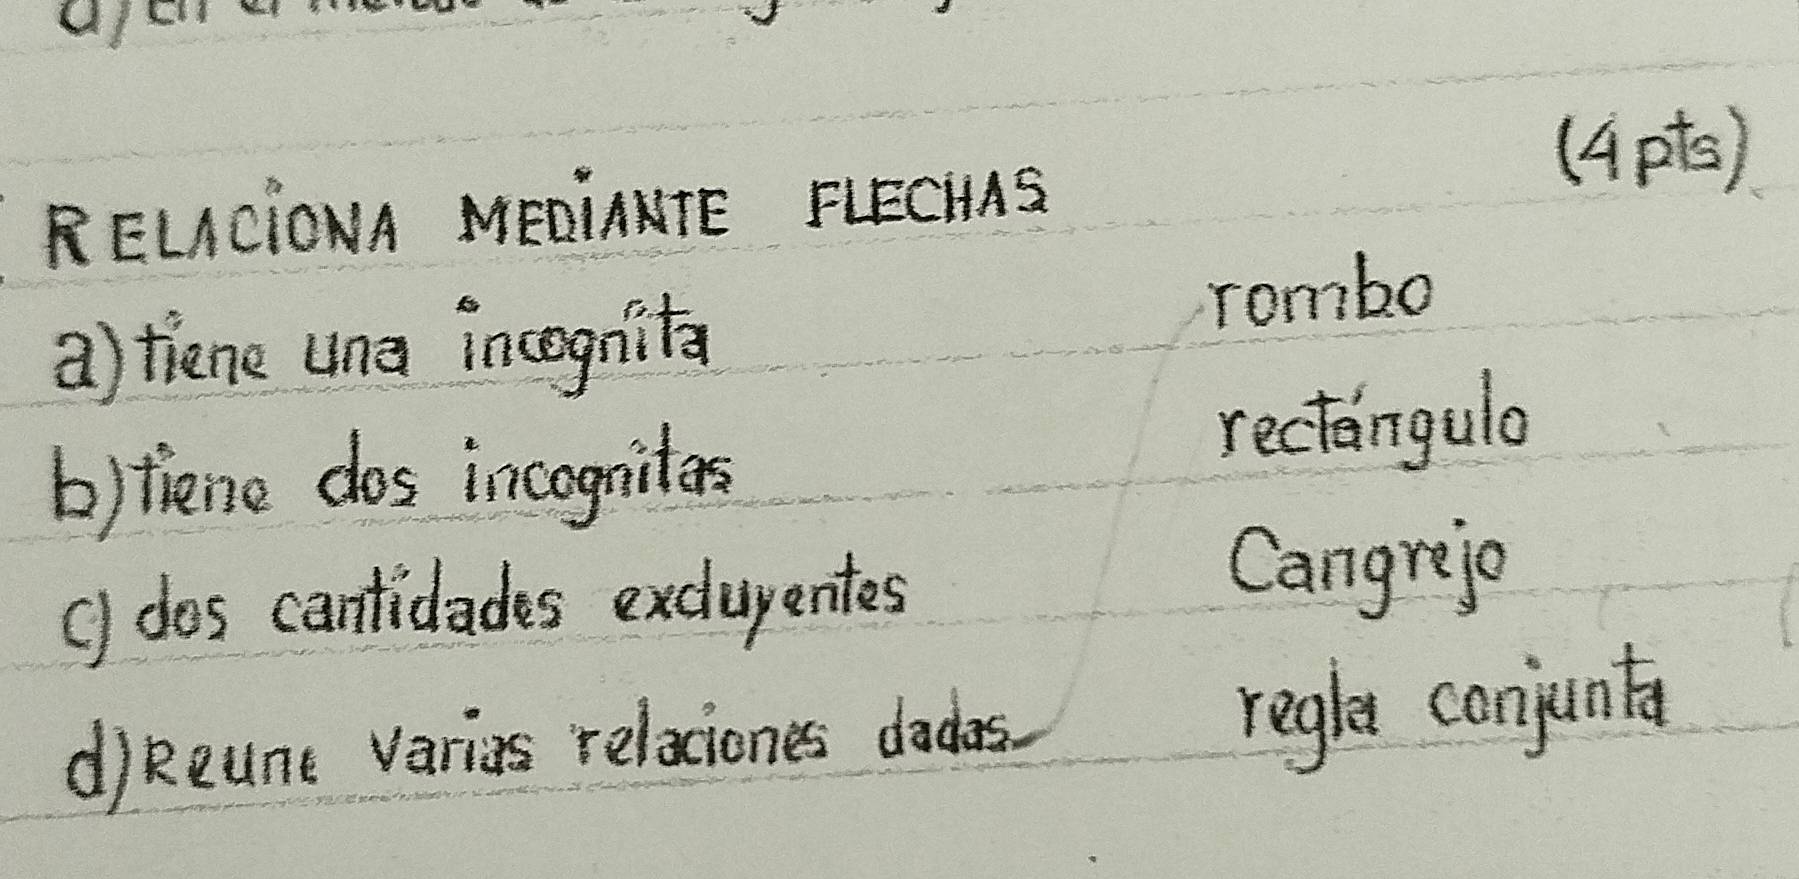 (4 pts)
RELACIONA MEDIANTE FLECHAS
a) tiene una incognita
rombo
b) tiene dos incognitas
rectángulo
c) dos cantidades excluyentes
Cangrejo
d) Reune varias relaciones dadas
regla conjunta